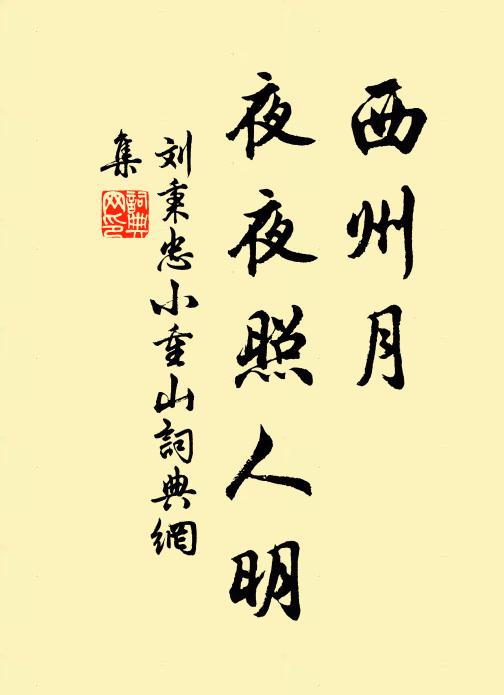 西州月
夜夜照人明
刘秉忠小重山詞典網
集
詞典網印